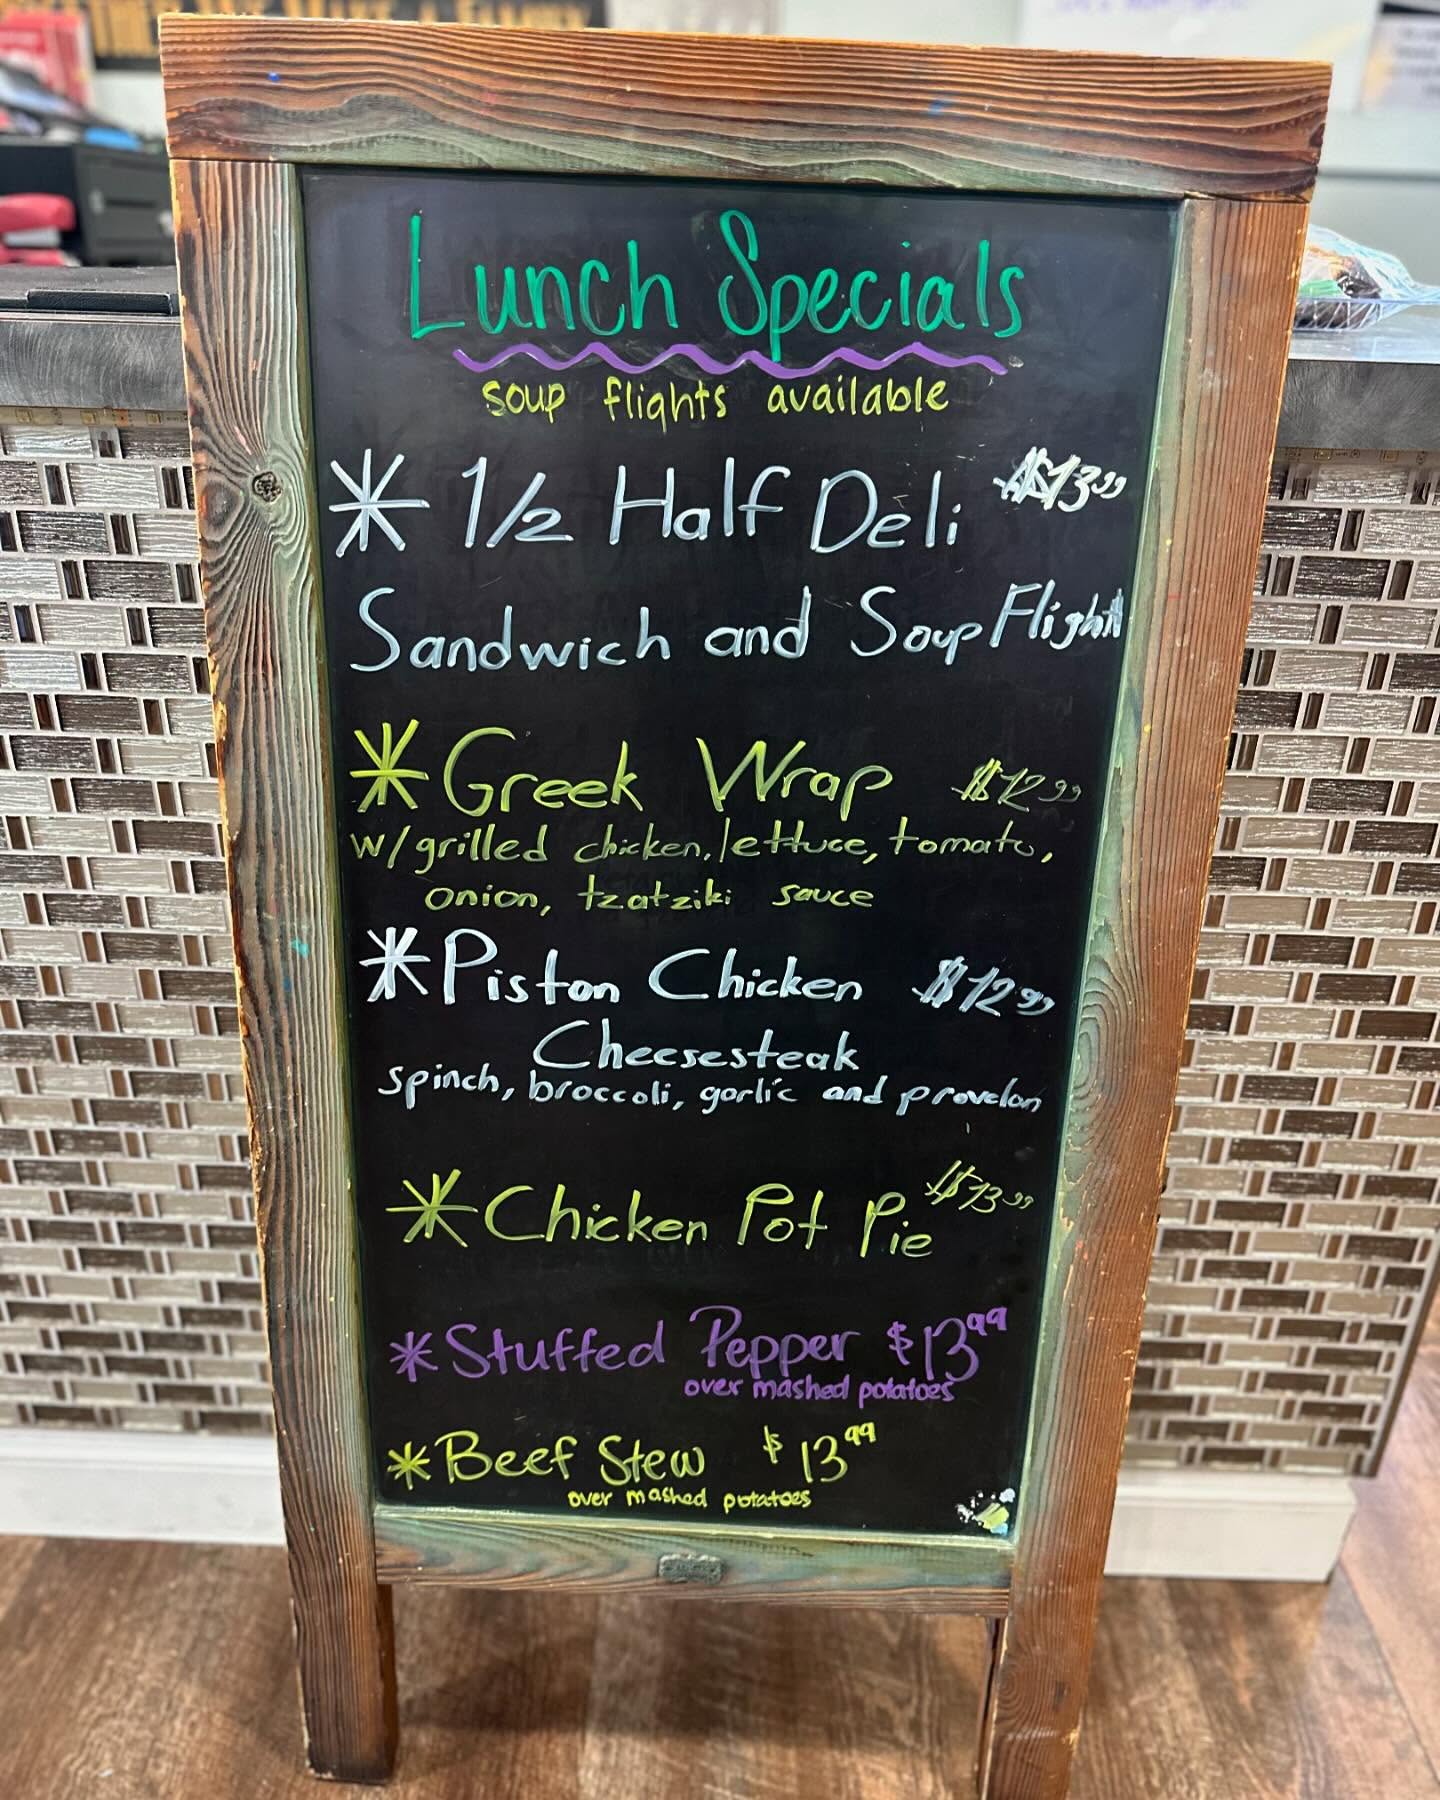 Lunch Specials
soup flights available
* 1/2 Half Deli $13.99
Sandwich and Soup Flight
* Greek Wrap $12.99
w/grilled chicken, lettuce, tomato,
onion, tzatziki sauce
* Piston Chicken $12.99
Cheesesteak
spinch, broccoli, garlic and provelon
* Chicken Pot Pie $13.99
* Stuffed Pepper $13.99
over mashed potatoes
* Beef Stew $13.99
over mashed potatoes